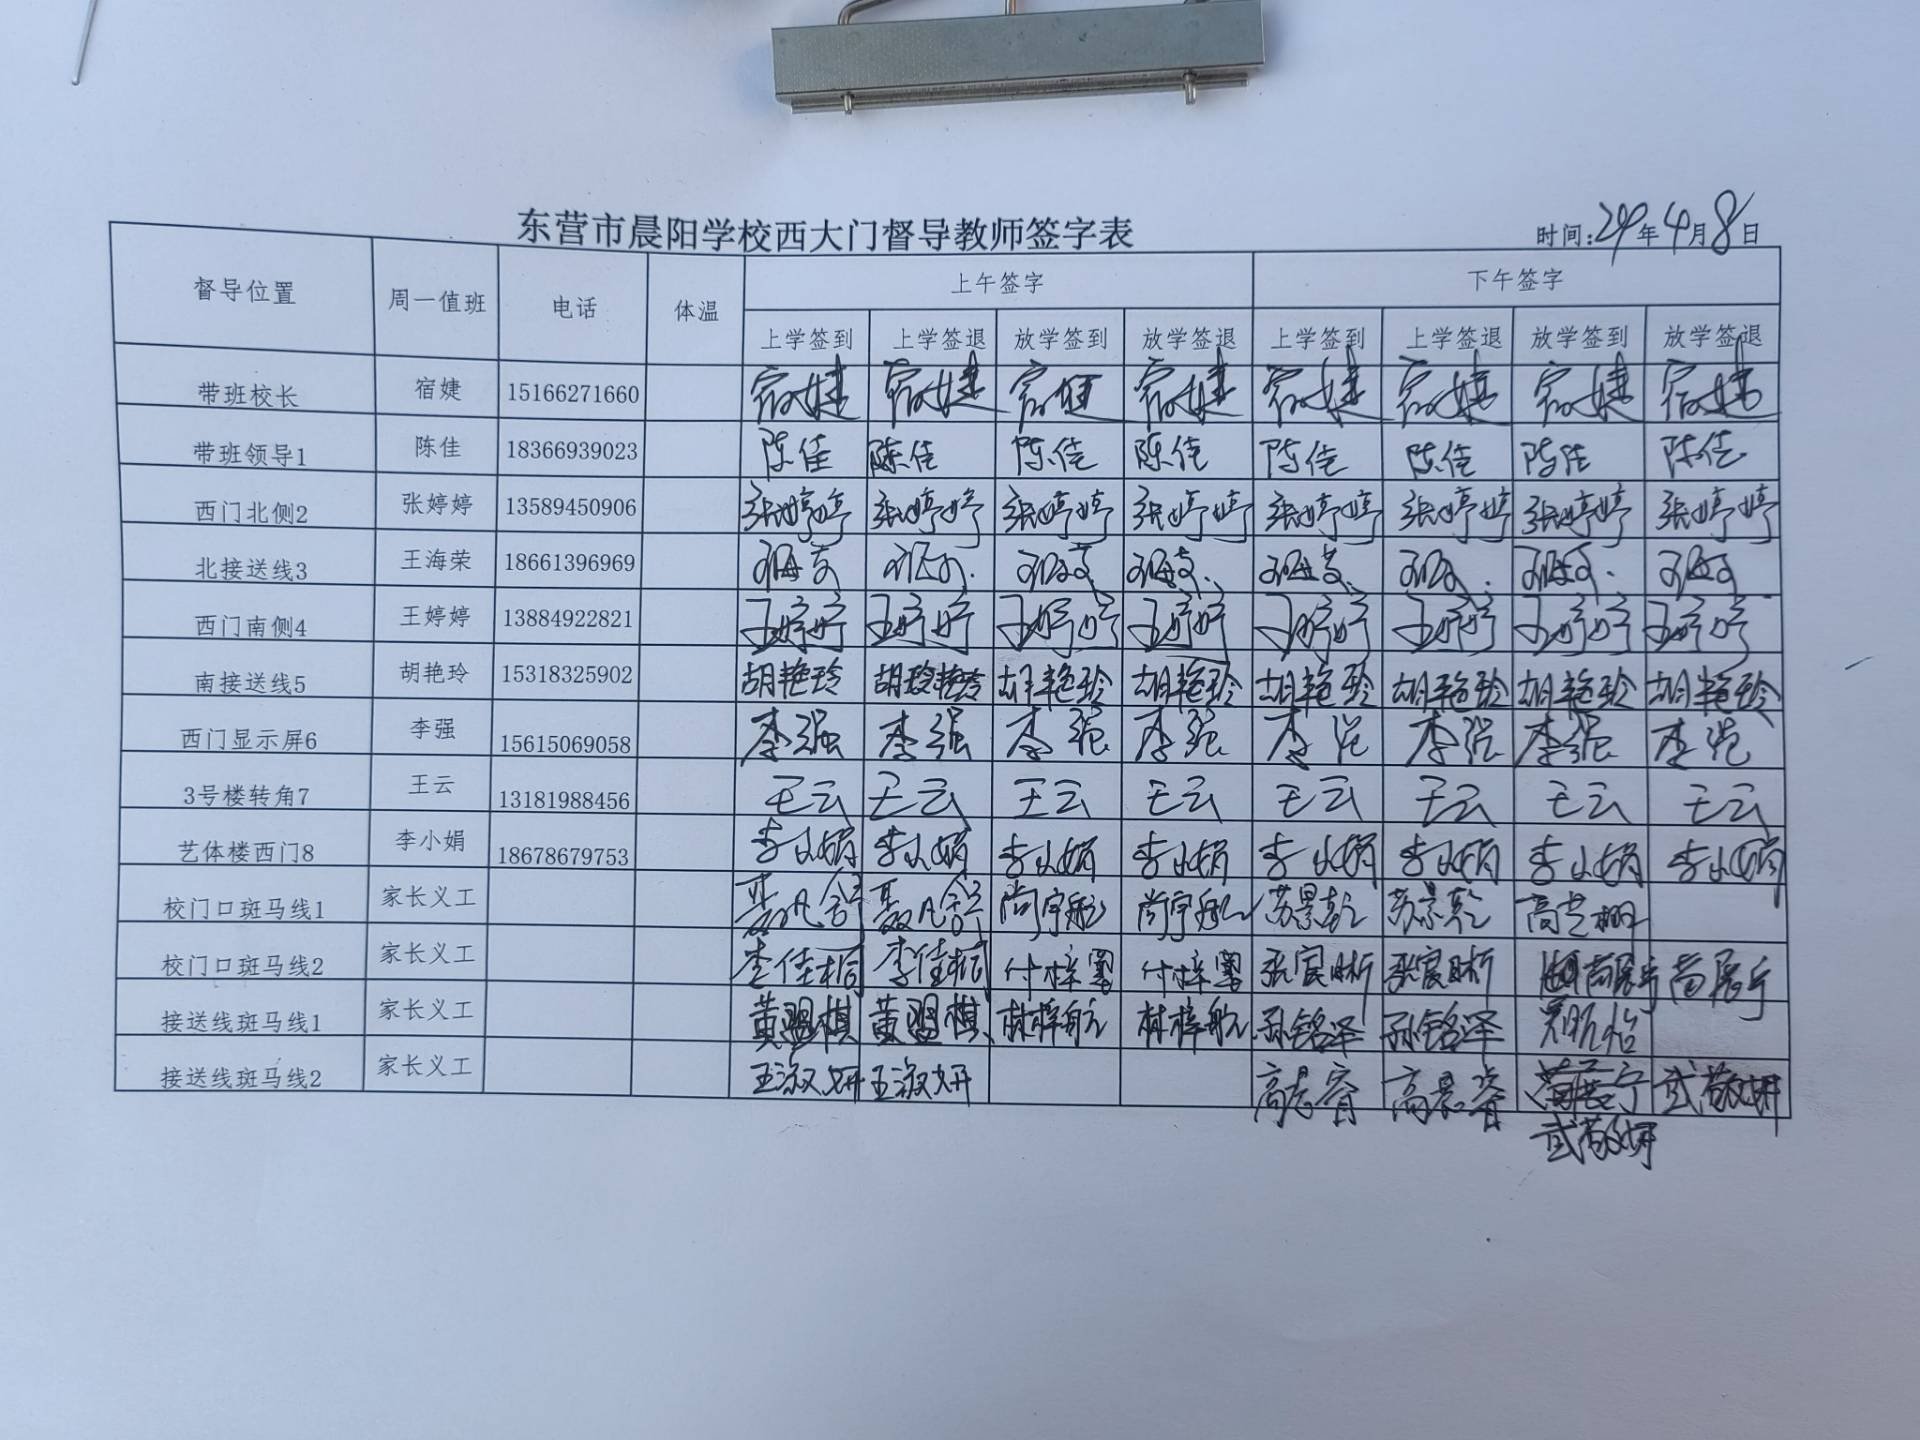 东营市晨阳学校西大门督导教师签字表
时间: 年4月8日
督导位置 周一值班 电话 体温 上午签字 下午签字
上学签到 上学签退 放学签到 放学签退 上学签到 上学签退 放学签到 放学签退
带班校长 宿婕 15166271660 宿婕 宿婕 宿婕 宿婕 宿婕 宿婕 宿婕 宿婕
带班领导1 陈佳 18366939023 陈佳 陈佳 陈佳 陈佳 陈佳 陈佳 陈佳 陈佳
西门北侧2 张婷婷 13589450906 张婷婷 张婷婷 张婷婷 张婷婷 张婷婷 张婷婷 张婷婷 张婷婷
北接送线3 王海荣 18661396969
西门南侧4 王婷婷 13884922821 王婷婷 王婷婷 王婷婷 王婷婷 王婷婷 王婷婷 王婷婷 王婷婷
南接送线5 胡艳玲 15318325902 胡艳玲 胡艳玲 胡艳玲 胡艳玲 胡艳玲 胡艳玲 胡艳玲 胡艳玲
西门显示屏6 李强 15615069058 李强 李强 李强 李强 李强 李强 李强 李强
3号楼转角7 王云 13181988456 王云 王云 王云 王云 王云 王云 王云 王云
艺体楼西门8 李小娟 18678679753 李小娟 李小娟 李小娟 李小娟 李小娟 李小娟 李小娟 李小娟
校门口斑马线1 家长义工 尚宇航 尚宇航 苏景乾 苏景乾
校门口斑马线2 家长义工 李佳桐 李佳桐
接送线斑马线1 家长义工 黄盟棋 黄盟棋 林梓航 林梓航 孙铭泽 孙铭泽
接送线斑马线2 家长义工 王淑妍 王淑妍 武敬妍
武敬妍